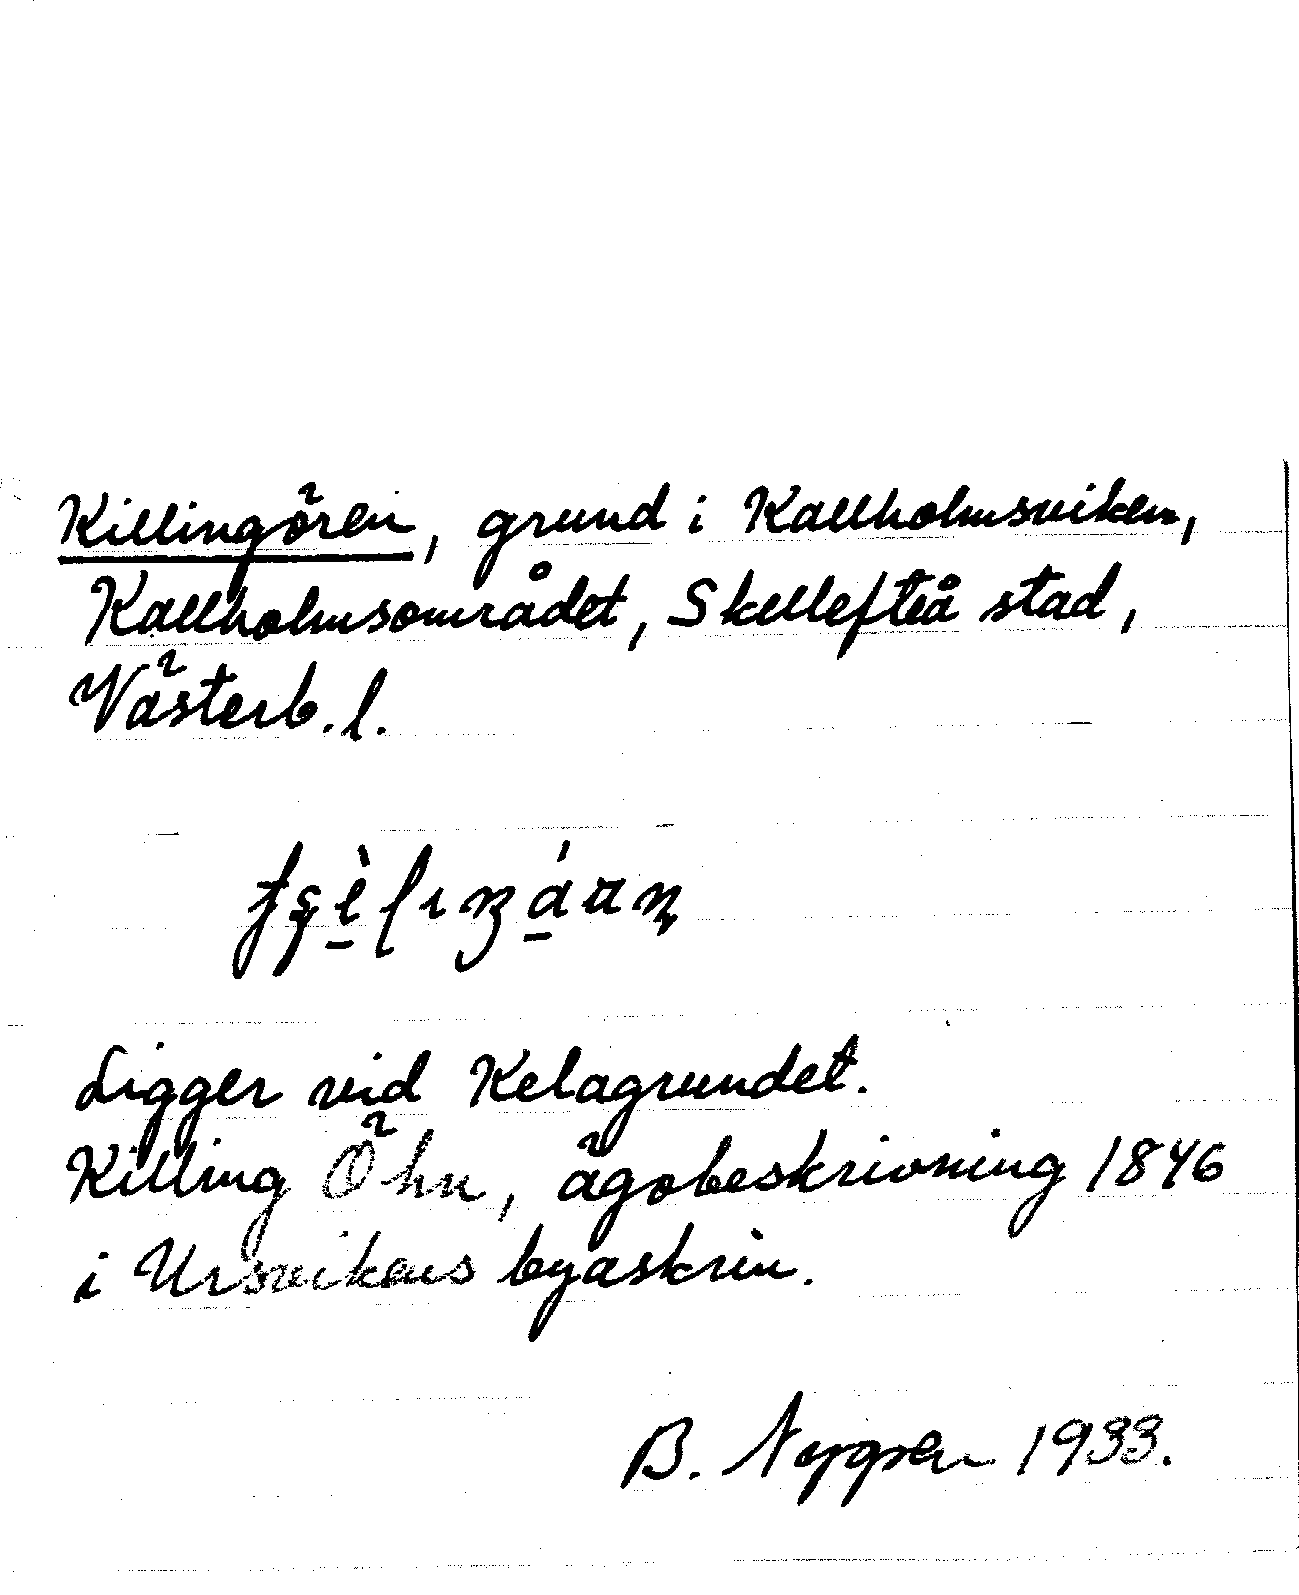 Killingören, grund i Kallholmsviken,
Kallholmsområdet, Skellefteå stad,
Västerb. l.
Ligger vid Kelagrundet.
Killing Öhn, ägobeskrivning 1846
i Ursvikens byaskrin.
B. Nygren 1933.